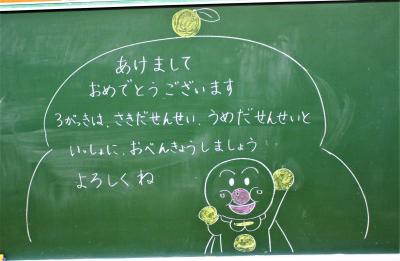 あけまして
おめでとうございます
3がっきは、さきだせんせい、うめだせんせいと
いっしょに、おべんきょうしましょう
よろしくね